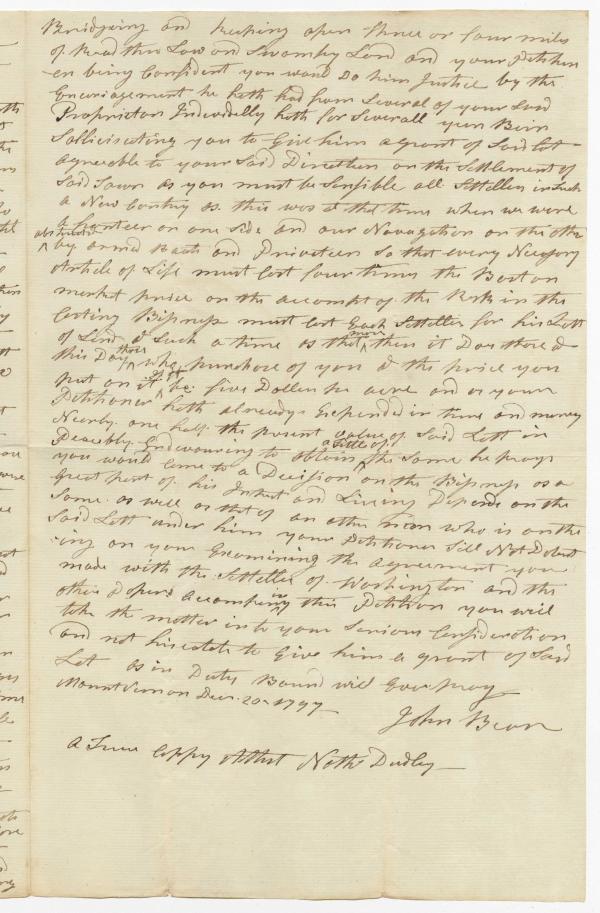 Bridgeing and keeping open three or four miles
of Road thro Low and Swamby Land and your Petition
er being Confident you would do him Justice by the
Encuriagement he hath had from Several of your Said
Proprietors Indevidelly hath for Severall years Bein
Sollicisating you to Give him a grant of Said Lot
agreeable to your Said Direction on the Settlement of
Said Town as you must be Sensible all Settellers in Such
a New Contry as this was at the time when we were
a frunteer on one side and our Navagation on the other
obstructed
by armed Boats and Privateers So that every Necesary
Article of Life must Cost four times the Boston
market price on the accompt of the Risk in the
Costing Bisness must Cost Each Setteller for his Lott
of Land at Such a time as that more then it Does those
this Day those who purchase of you at the price you
put on it at be five Dollers pe acre and as your
Petitioner hath already Expended in time and money
Nearby one half the present value of Said Lott in
Peacebly Endevouring to obtain a title of the Same he prays
you would Come to a Decision on the Bisness as a
Great part of his Intrest and Living Depends on the
Same as well as that of an other man who is on the
Said Lott under him your Petitioner Still Not Dobut
ing on your Examining the agreement you
made with the Settellers of Washington and the
other Papers accompining this Petition you will
take the matter in to your Serious Consideration
and not hisetate to Give him a grant of Said
Lot as in Duty Bound will Ever pray
Mount Vernon Decr 20 1797
John Bean
A True Coppy Attest Nathl Dudley